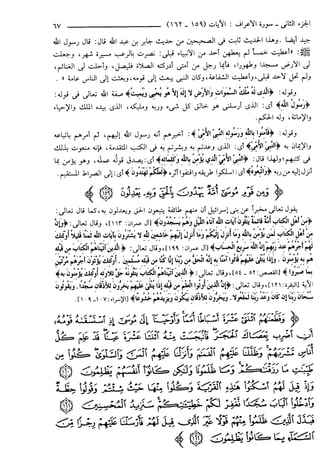 الجزء الثانى - سورة الأعراف : الآيات (١٥٩ - ١٦٢) ٦٧
جيد أيضا . وهذا الحديث ثابت فى الصحيحين من حديث جابر بن عبد الله قال: قال رسول الله
ﷺ: «أعطيت خمساً لم يعطهن أحد من الأنبياء قبلى: نصرت بالرعب مسيرة شهر، وجعلت
لى الأرض مسجدا وطهورا، فأيما رجل من أمتى أدركته الصلاة فليصل، وأحلت لى الغنائم،
ولم تحل لأحد قبلى، وأعطيت الشفاعة، وكان النبى يبعث إلى قومه، وبعثت إلى الناس عامة» .
وقوله: ﴿الَّذِي لَهُ مُلْكُ السَّمَوَاتِ وَالأَرْضِ لا إِلَهَ إِلاَّ هُوَ يُحْيِي وَيُمِيتُ﴾ صفة الله تعالى فى قوله:
﴿رَسُولُ اللَّهِ﴾ أى: الذى أرسلنى هو خالق كل شىء وربه ومليكه، الذى بيده الملك والإحياء
والإماتة، وله الحكم.
وقوله: ﴿فَآمِنُوا بِاللَّهِ وَرَسُولِهِ النَّبِيِّ الأُمِّيِّ﴾: أخبرهم أنه رسول الله إليهم، ثم أمرهم باتباعه
والإيمان به ﴿النَّبِيِّ الأُمِّيِّ﴾ أى: الذى وعدتم به وبشرتم به فى الكتب المتقدمة، فإنه منعوت بذلك
فى كتبهم؛ ولهذا قال: ﴿الَّذِي يُؤْمِنُ بِاللَّهِ وَكَلِمَاتِهِ﴾ أى: يصدق قوله عمله، وهو يؤمن بما
أنزل إليه من ربه ﴿وَاتَّبِعُوهُ﴾ أى: اسلكوا طريقه واقتفوا أثره ﴿لَعَلَّكُمْ تَهْتَدُونَ﴾ أى: إلى الصراط المستقيم.
وَمِن قَوْمِ مُوسَىٰ أُمَّةٌ يَهْدُونَ بِالْحَقِّ وَبِهِ يَعْدِلُونَ ﴿١٥٩﴾
يقول تعالى مخبراً عن بنى إسرائيل أن منهم طائفة يتبعون الحق ويعدلون به، كما قال تعالى:
﴿مِنْ أَهْلِ الْكِتَابِ أُمَّةٌ قَائِمَةٌ يَتْلُونَ آيَاتِ اللَّهِ آنَاءَ اللَّيْلِ وَهُمْ يَسْجُدُونَ﴾ [آل عمران: ١١٣]، وقال تعالى: ﴿وَإِنَّ
مِنْ أَهْلِ الْكِتَابِ لَمَن يُؤْمِنُ بِاللَّهِ وَمَا أُنزِلَ إِلَيْكُمْ وَمَا أُنزِلَ إِلَيْهِمْ خَاشِعِينَ لِلَّهِ لا يَشْتَرُونَ بِآيَاتِ اللَّهِ ثَمَنًا قَلِيلاً أُولَئِكَ
لَهُمْ أَجْرُهُمْ عِندَ رَبِّهِمْ إِنَّ اللَّهَ سَرِيعُ الْحِسَابِ﴾ [آل عمران: ١٩٩]، وقال تعالى: ﴿الَّذِينَ آتَيْنَاهُمُ الْكِتَابَ مِن قَبْلِهِ
هُم بِهِ يُؤْمِنُونَ . وَإِذَا يُتْلَى عَلَيْهِمْ قَالُوا آمَنَّا بِهِ إِنَّهُ الْحَقُّ مِن رَّبِّنَا إِنَّا كُنَّا مِن قَبْلِهِ مُسْلِمِينَ . أُولَئِكَ يُؤْتَوْنَ أَجْرَهُم مَّرَّتَيْنِ
بِمَا صَبَرُوا﴾ [القصص: ٥٢ - ٥٤]، وقال تعالى: ﴿الَّذِينَ آتَيْنَاهُمُ الْكِتَابَ يَتْلُونَهُ حَقَّ تِلاوَتِهِ أُولَئِكَ يُؤْمِنُونَ بِهِ﴾
الآية [البقرة: ١٢١]، وقال تعالى: ﴿إِنَّ الَّذِينَ أُوتُوا الْعِلْمَ مِن قَبْلِهِ إِذَا يُتْلَى عَلَيْهِمْ يَخِرُّونَ لِلأَذْقَانِ سُجَّدًا . وَيَقُولُونَ
سُبْحَانَ رَبِّنَا إِن كَانَ وَعْدُ رَبِّنَا لَمَفْعُولاً . وَيَخِرُّونَ لِلأَذْقَانِ يَبْكُونَ وَيَزِيدُهُمْ خُشُوعًا﴾ [الإسراء: ١٠٧ - ١٠٩].
وَقَطَّعْنَاهُمُ اثْنَتَيْ عَشْرَةَ أَسْبَاطًا أُمَمًا وَأَوْحَيْنَا إِلَىٰ مُوسَىٰ إِذِ اسْتَسْقَاهُ قَوْمُهُ
أَنِ اضْرِب بِّعَصَاكَ الْحَجَرَ فَانبَجَسَتْ مِنْهُ اثْنَتَا عَشْرَةَ عَيْنًا قَدْ عَلِمَ كُلُّ
أُنَاسٍ مَّشْرَبَهُمْ وَظَلَّلْنَا عَلَيْهِمُ الْغَمَامَ وَأَنزَلْنَا عَلَيْهِمُ الْمَنَّ وَالسَّلْوَىٰ كُلُوا مِن
طَيِّبَاتِ مَا رَزَقْنَاكُمْ وَمَا ظَلَمُونَا وَلَٰكِن كَانُوا أَنفُسَهُمْ يَظْلِمُونَ ﴿١٦٠﴾
وَإِذْ قِيلَ لَهُمُ اسْكُنُوا هَٰذِهِ الْقَرْيَةَ وَكُلُوا مِنْهَا حَيْثُ شِئْتُمْ وَقُولُوا حِطَّةٌ
وَادْخُلُوا الْبَابَ سُجَّدًا نَّغْفِرْ لَكُمْ خَطِيئَاتِكُمْ سَنَزِيدُ الْمُحْسِنِينَ ﴿١٦١﴾
فَبَدَّلَ الَّذِينَ ظَلَمُوا مِنْهُمْ قَوْلًا غَيْرَ الَّذِي قِيلَ لَهُمْ فَأَرْسَلْنَا عَلَيْهِمْ رِجْزًا مِّنَ
السَّمَاءِ بِمَا كَانُوا يَظْلِمُونَ ﴿١٦٢﴾